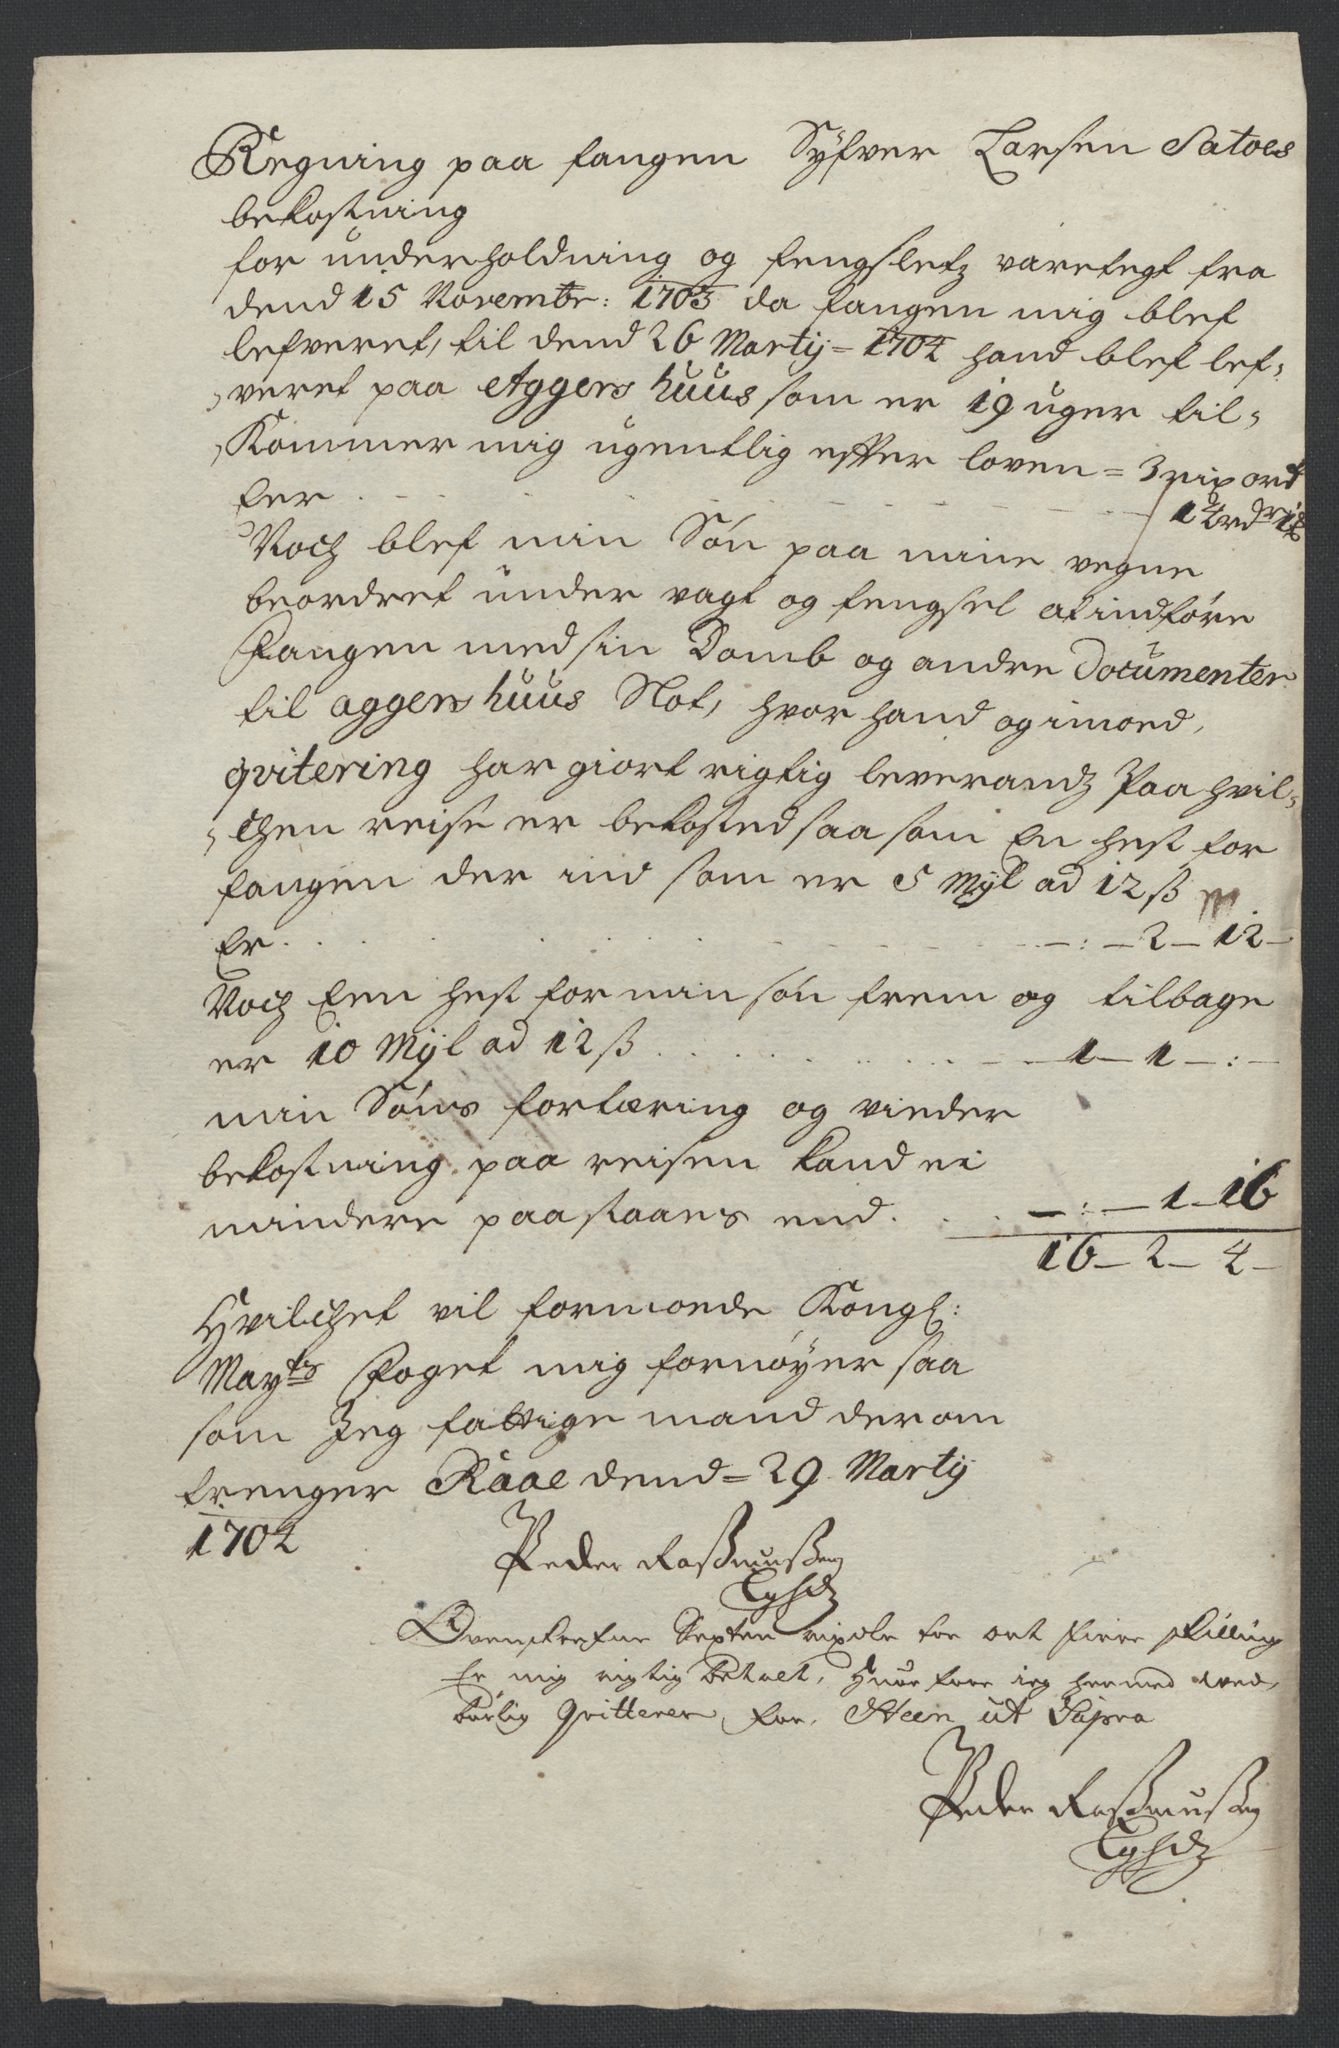 Regning paa fangen Syfver Larsen Satoes
bekostning
for underholdning og fengsletz varetegt fra
dend 15 Novembr: 1703 da fangen mig blef
lefveret, til dend 26 Martij = 1704 hand blef lef=
=veret paa Aggers huus som er 19 uger til=
=kommer mig ugentlig efter loven = 3 rix ort
er 
Noch blef min Søn paa mine vegne
beordret under vagt og fengsel at indføre
Fangen med sin Domb og andre Documenter
til aggers huus Slot, hvor hand og imoed,
qvitering har giort rigtig leverandz Paa hvil=
=chen reise er bekosted saa som En hest for
fangen der ind som er 5 Mÿl ad 12 ß
Er . . . - : - 2 - 12 -
Noch Een hest for min søn frem og tilbage
er 10 Mÿl ad 12 ß . . . 1 - 1 - : -
min Søns fortæring og vieder
bekostning paa reisen kand ei
mindere paastaaes end . . . - : - 1 - 16
16 - 2 - 4 -
Hvilchet vil formoede Kongl:
Mayts Foget mig fornøyer saa
som Jeg fattige mand derom
trenger Raae dend = 29 Martij
1704
Peder Raßmußen
Ovenskrefne Sexten rixdlr toe ort fiere skilling
Er mig rigtig betalt, Huor fore ieg hermed ved,
børlig Qvitterer, foe. Steen ut Supra
Peder Raßmußen